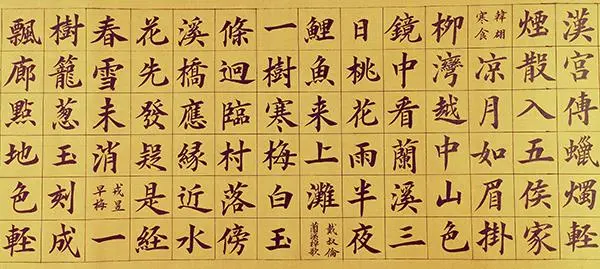 漢宮傳蠟燭軽
煙散入五侯家
韓翃寒食涼月如眉掛
柳灣越中山色
鏡中看蘭溪三
日桃花雨半夜
鯉魚来上灘戴叔倫蘭溪棹歌
一樹寒梅白玉
條迴臨村落傍
溪橋應縁近水
花先發疑是経
春雪未消戎昱早梅一
樹籠葱玉刻成
飄廊點地色軽